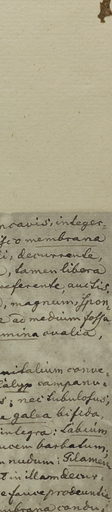 ovavis, integer-
membrana
, decurrente
, tamen libera
deferente, auctus
, magnum, spon
ad medium fossa
mina ovalia,
nitalium conve-
Calyx campanu-
; nec tubulosus,
galea bifida,
integra: Labium
barbatum,
nudum: Filamen
t in illam decur-
e fauce prodeunti-
mbrana condu